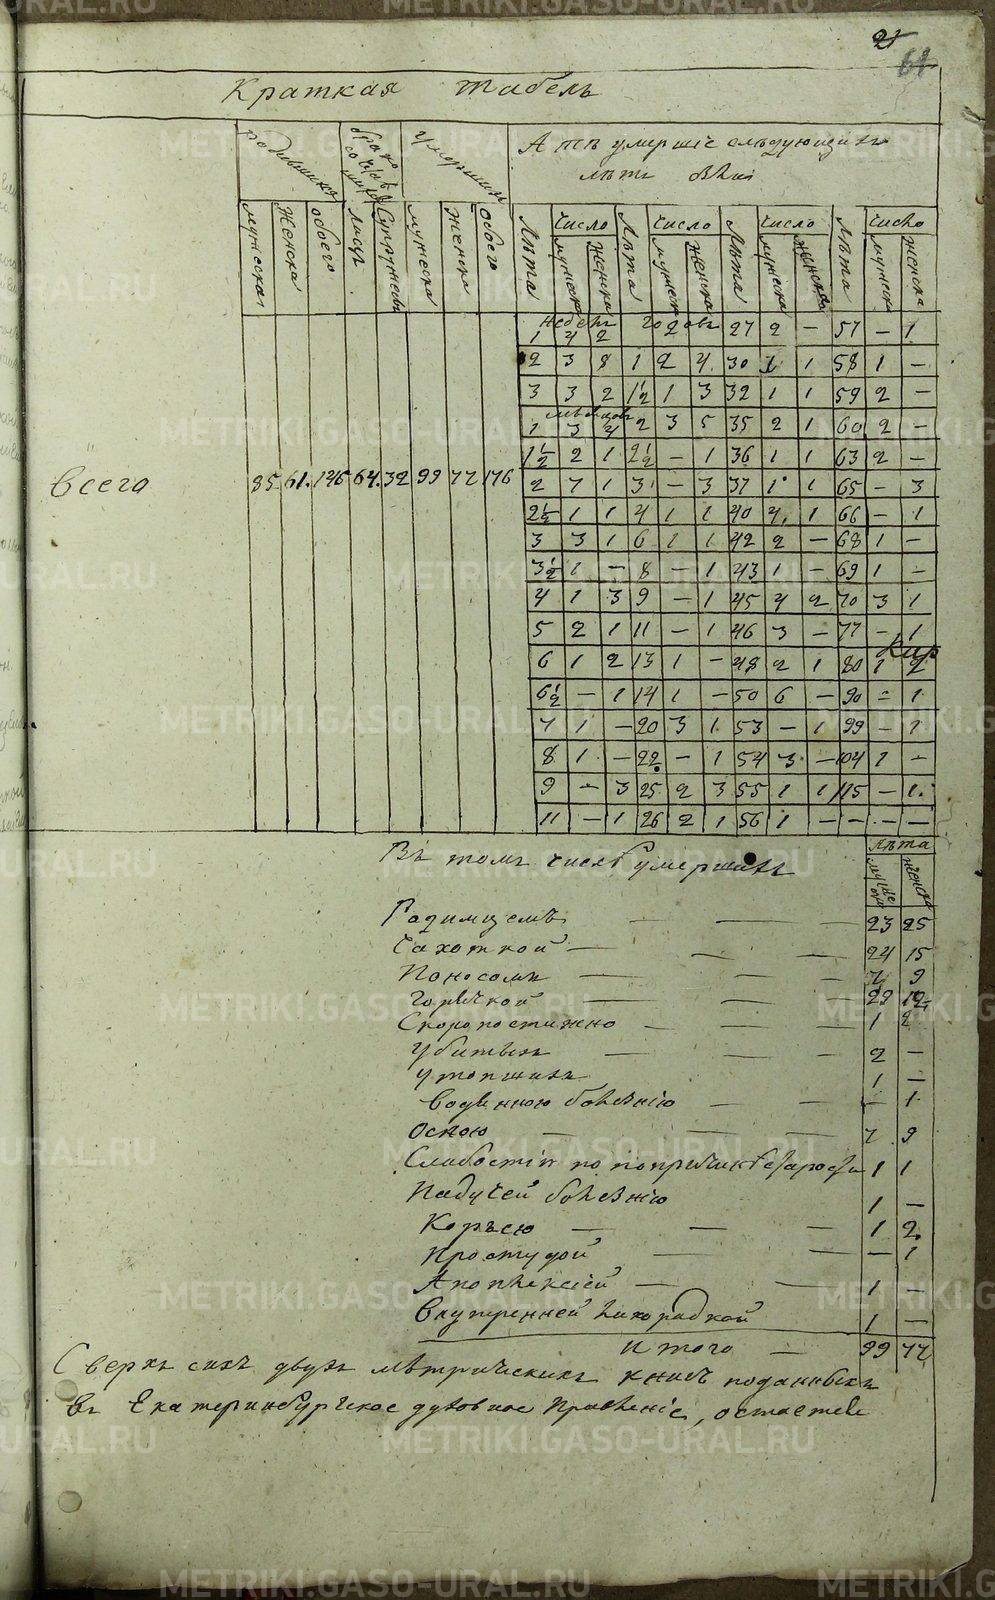 21
61
Краткая Табель
родившихся
браковъ
умершихъ
А тѣ умершіе слѣдующихъ
лѣтъ были
мужеска
Женска
обоего
Супружевъ
мужеска
Женска
обоего
Лѣта число Лѣта число Лѣта число Лѣта число
мужеска женска мужеск женска мужеска женска мужеск женска
недель годовъ 27 2 — 57 — 1
1 4 2
2 3 8 1 2 4 30 1 1 58 1 —
3 3 2 1½ 1 3 32 1 1 59 2 —
мѣсяцовъ
1 3 4 2 3 5 35 2 1 60 2 —
1½ 2 1 2½ — 1 36 1 1 63 2 —
Всего 85. 61. 146 64. 32 99 77 176
2 7 1 3 — 3 37 1 1 65 — 3
2½ 1 1 4 1 1 40 4 1 66 — 1
3 3 1 6 1 1 42 2 — 68 1 —
3½ 1 — 8 — 1 43 1 — 69 1 —
4 1 3 9 — 1 45 4 2 70 3 1
5 2 1 11 — 1 46 3 — 77 — 1
6 1 2 13 1 — 48 2 1 80 1 2
6½ — 1 14 1 — 50 6 — 90 — 1
7 1 — 20 3 1 53 — 1 99 — 1
8 1 — 22 — 1 54 3 — 104 1 —
9 — 3 25 2 3 55 1 1 115 — 1
11 — 1 26 2 1 56 1 — — — —
Въ томъ числѣ умершихъ
лѣта
мужеска женска
Родимцемъ — — — 23 25
Чахоткой — — — 24 15
Поносомъ — — — 7 9
Горячкой — — — 29 12
Скоропостижно — — — 1 2
Убитыхъ — — — 2 —
утопшихъ 1 —
Водяною болѣзнію — — — 1
Оспою — — — 7 9
Слабостію по причинѣ старости 1 1
Падучей болѣзнію 1 —
Корью — — — 1 2
Простудой — — — 1
Апоплексіей — — 1 —
Внутренней лихорадкой 1 —
Итого — 99 77
Сверхъ сихъ двухъ метрическихъ книгъ поданныхъ
въ Екатеринбургское духовное Правленіе, остается
METRIKI.GASO-URAL.RU